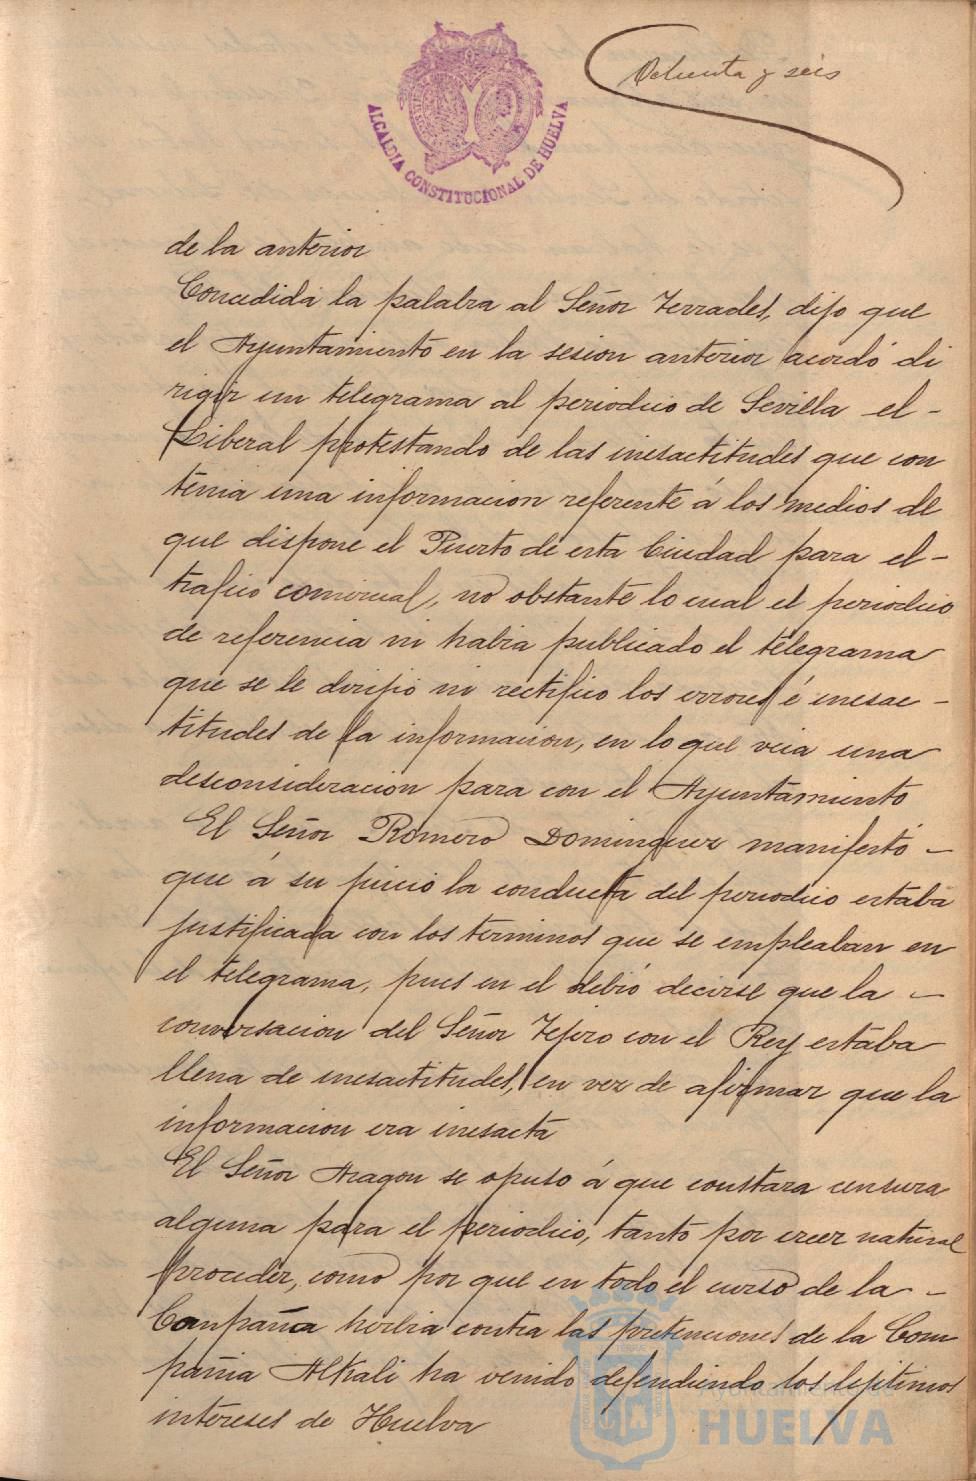 Ochenta y seis
ALCALDIA CONSTITUCIONAL DE HUELVA
de la anterior
Concedida la palabra al Señor Terrades, dijo que
el Ayuntamiento en la sesion anterior acordó di
rigir un telegrama al periodico de Sevilla el -
Liberal protestando de las inesactitudes que con
tenia una informacion referente á los medios de
que dispone el Puerto de esta Ciudad para el -
trafico comercial, no obstante lo cual el periodico
de referencia ni habia publicado el telegrama
que se le dirijio ni rectifico los errores é inesac -
titudes de la informacion, en lo que veia una
desconsideracion para con el Ayuntamiento
El Señor Romero Dominguez manifestó -
que á su juicio la conducta del periodico estaba
justificada con los terminos que se empleaban en
el telegrama, pues en el debió decirse que la -
conversacion del Señor Tejero con el Rey estaba
llena de inesactitudes, en vez de afirmar que la
informacion era inesacta
El Señor Aragon se opuso á que constara censura
alguna para el periodico, tanto por creer natural
proceder, como por que en todo el curso de la -
Campaña hecha contra las pretenciones de la Com
pañia Alkali ha venido defendiendo los lejitimos
intereses de Huelva
Ayuntamiento
HUELVA